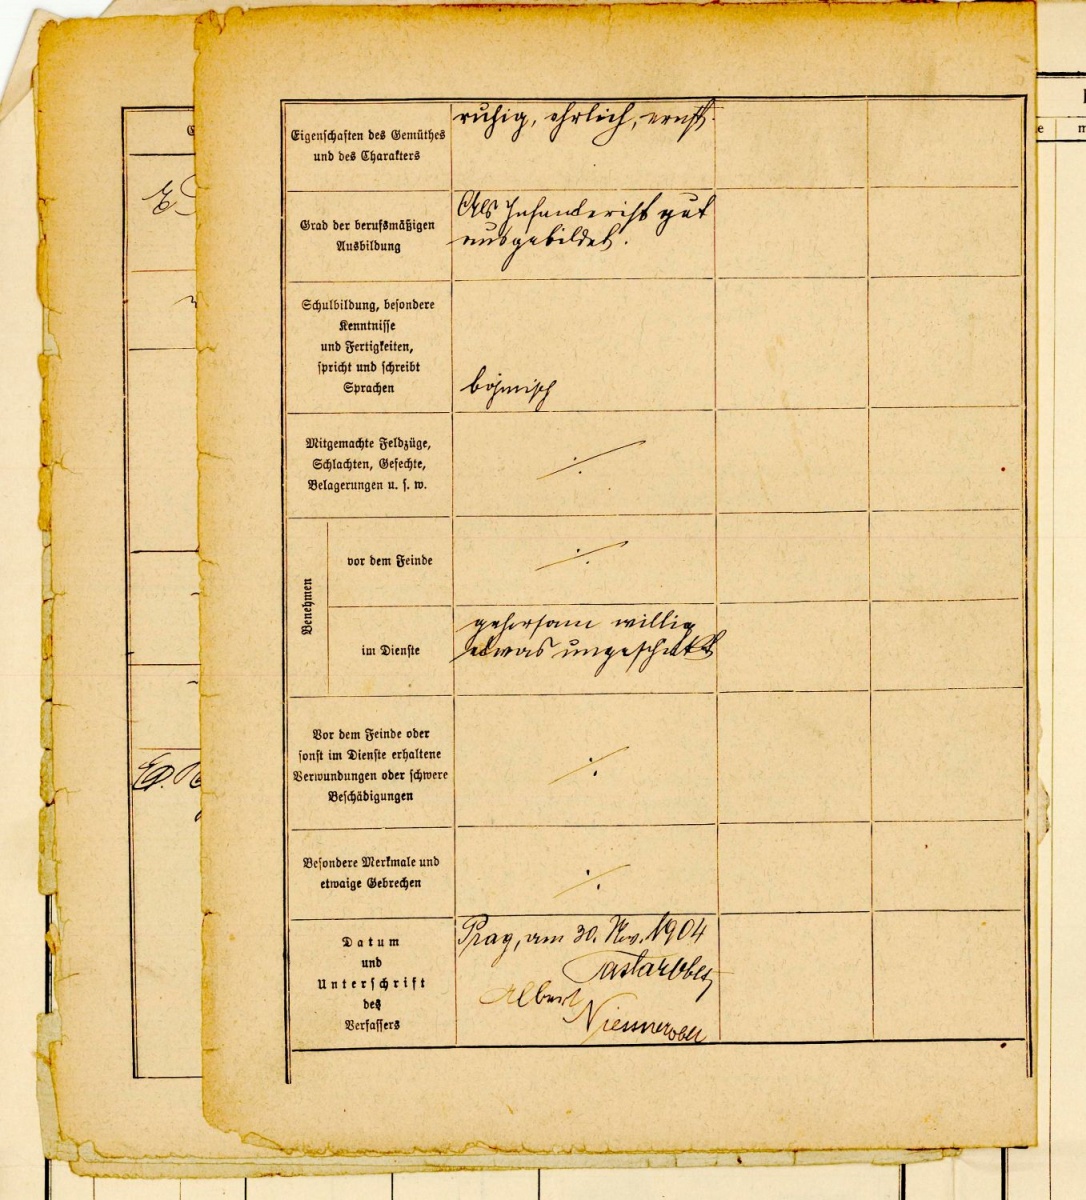 Eigenschaften des Gemüthes
und des Charakters
ruhig, ehrlich, ernst.
Grad der berufsmäßigen
Ausbildung
Als Infanterist gut
ausgebildet.
Schulbildung, besondere
Kenntnisse
und Fertigkeiten,
spricht und schreibt
Sprachen
böhmisch
Mitgemachte Feldzüge,
Schlachten, Gefechte,
Belagerungen u. s. w.
Benehmen
vor dem Feinde
im Dienste
gehorsam willig
etwas ungeschickt
Vor dem Feinde oder
sonst im Dienste erhaltene
Verwundungen oder schwere
Beschädigungen
Besondere Merkmale und
etwaige Gebrechen
Datum
und
Unterschrift
des
Verfassers
Prag, am 30. Nov. 1904
Albert